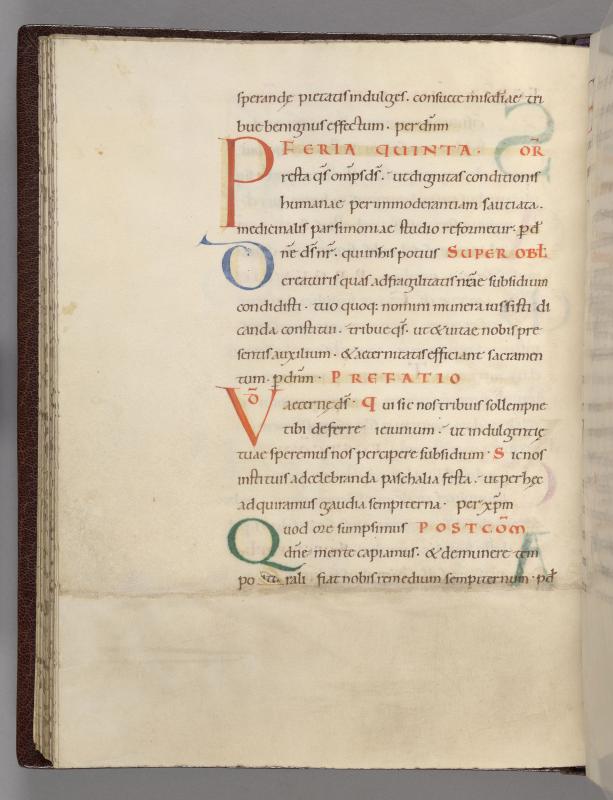 sperande pietatis indulges. consuete misc̄diae tri
bue benignus effectum. per dn̄m
FERIA QUINTA. OR̄
Presta qs̄ omps̄ ds̄. ut dignitas conditionis
humanae per immoderantiam sautiata.
medicinalis parsimoniae studio reformetur. p̄ d̄
Dn̄e ds̄ nr̄. qui in his potius SUPER OBL̄
creaturis quas ad fragilitatis nr̄ae subsidium
condidisti. tuo quoq; nomini munera iussisti di
canda constitui. tribue qs̄. ut & uitae nobis pre
sentis auxilium. & aeternitatis efficiant sacramen
tum. p̄ dn̄m. PREFATIO
VD̄ aeterne ds̄. Qui sic nos tribuis sollempne
tibi deferre ieiunium. ut indulgentię
tuae speremus nos percipere subsidium. Sic nos
instituis ad celebranda paschalia festa. ut per hęc
adquiramus gaudia sempiterna. per xp̄m
Quod ore sumpsimus POSTCOM̄
dn̄e mente capiamus. & de munere tem
porali fiat nobis remedium sempiternum. p̄ d̄